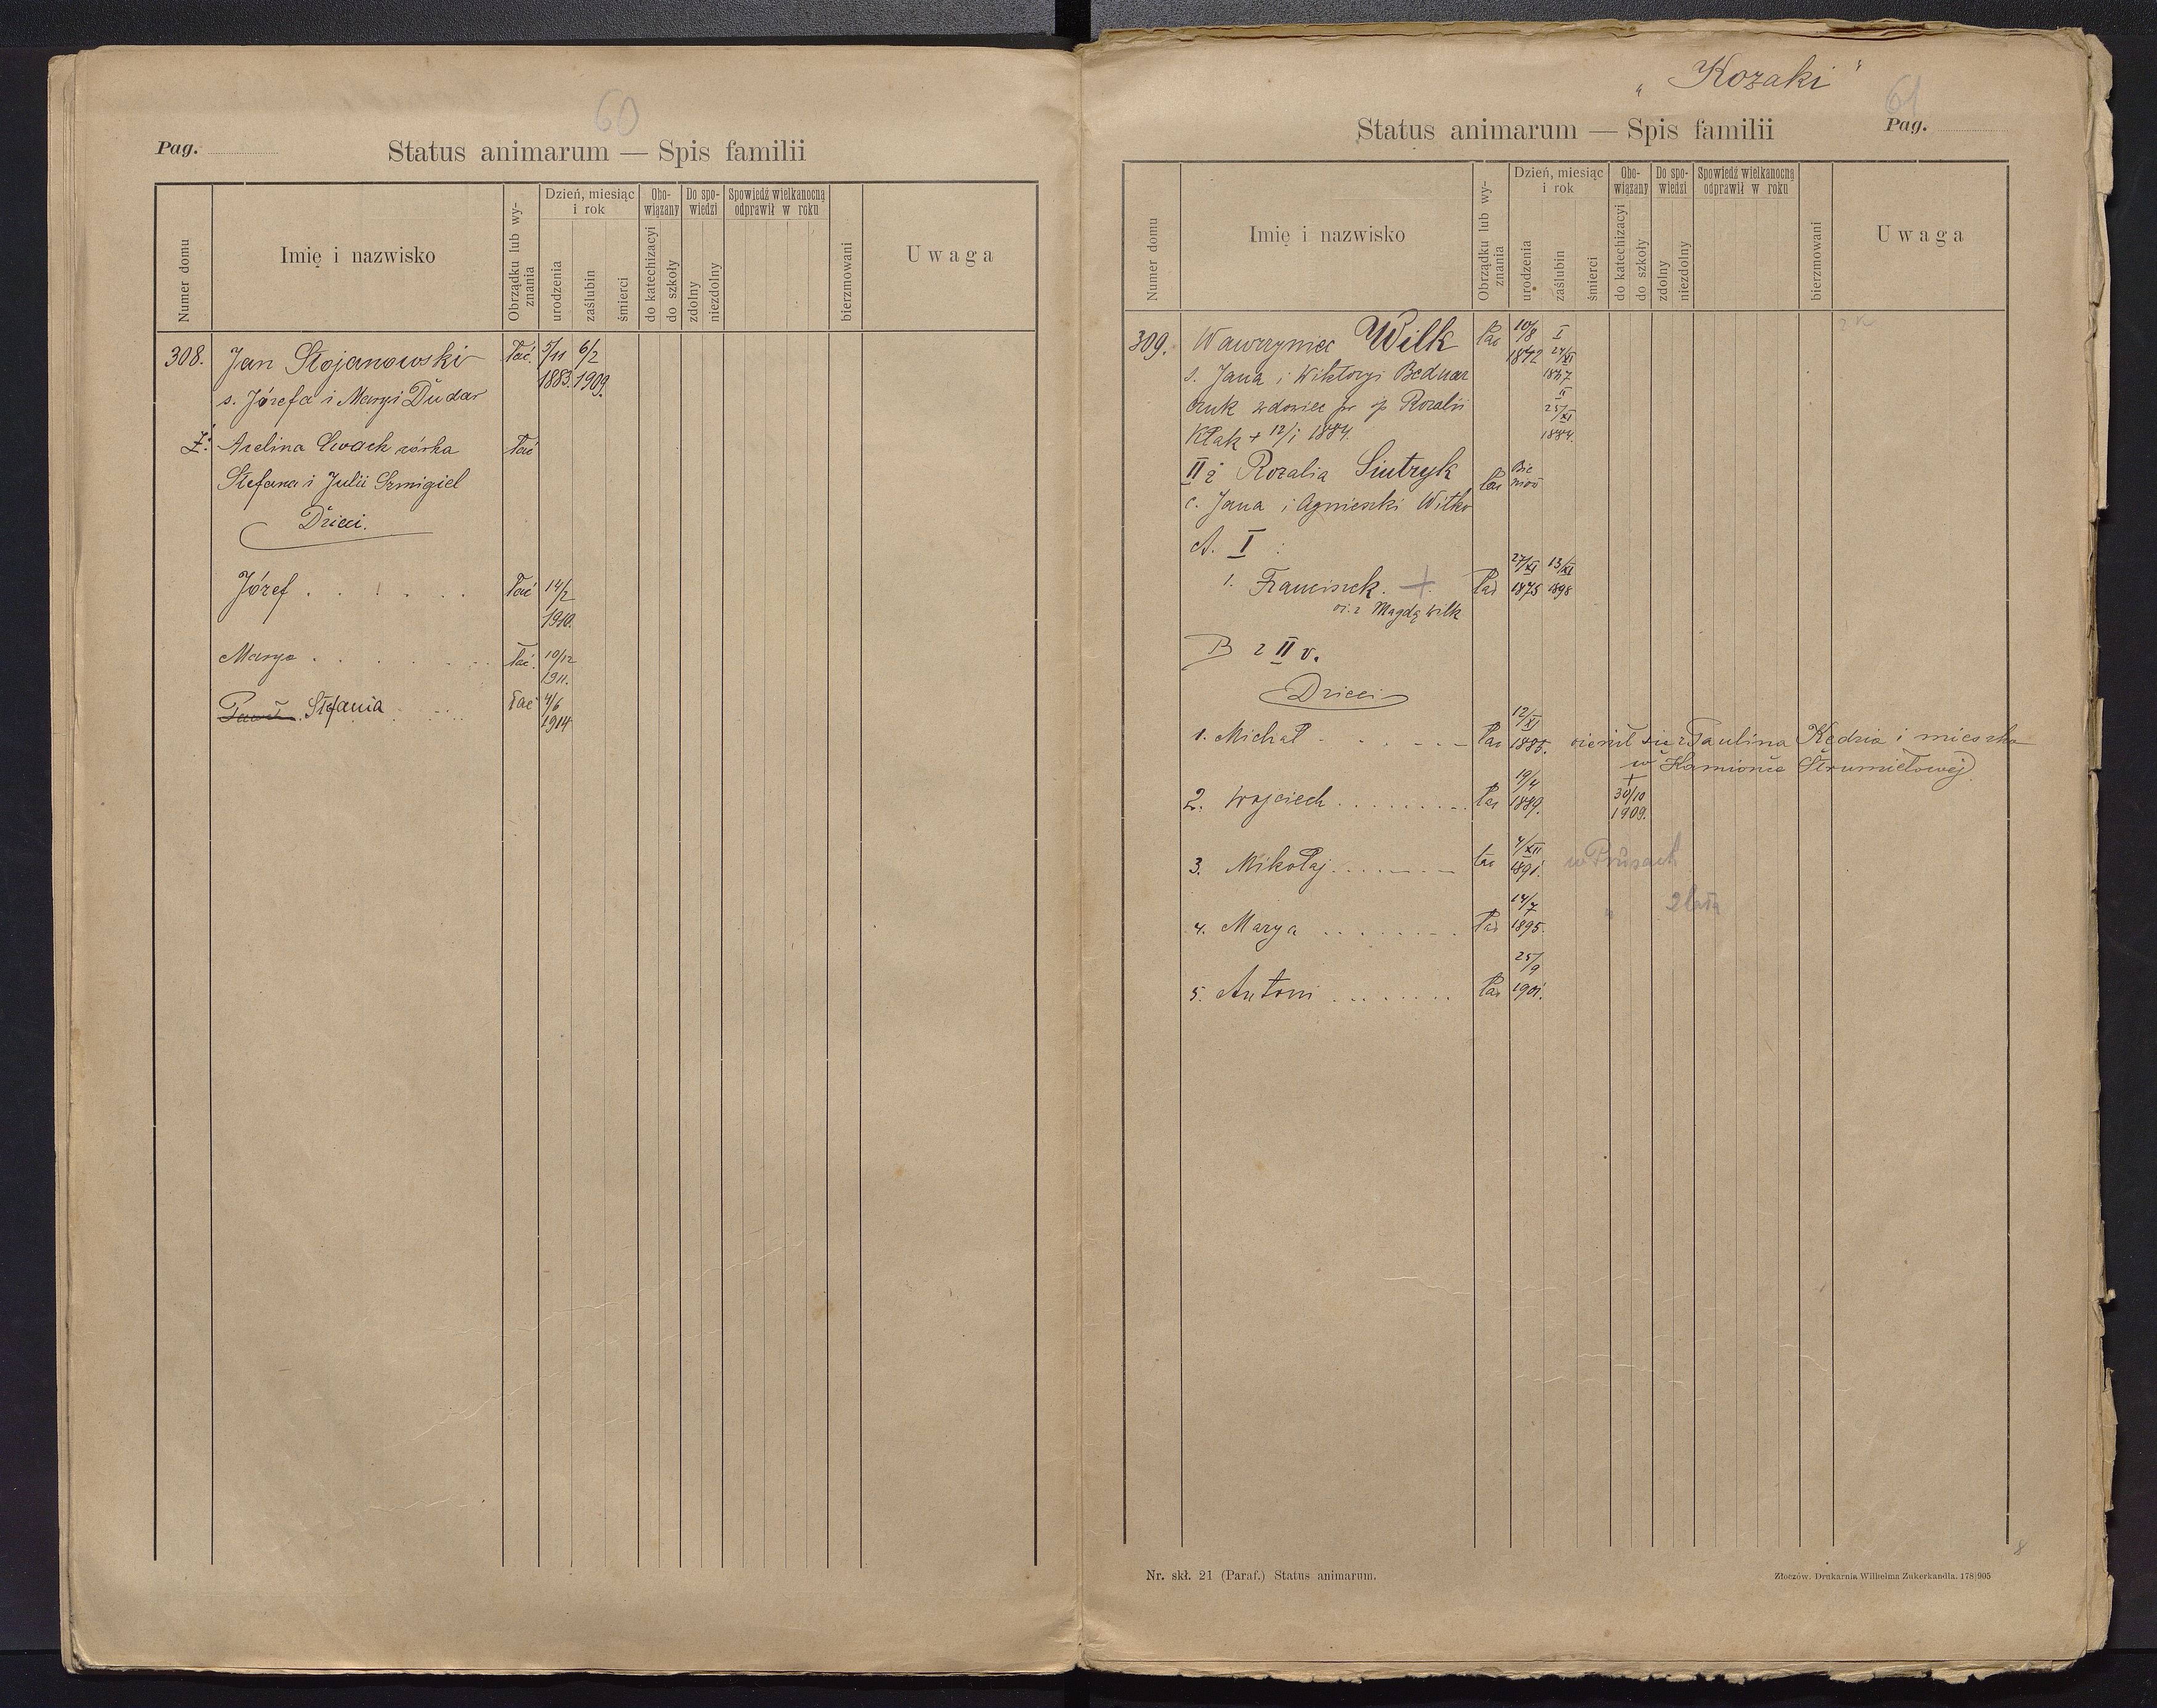 60
Pag.
Status animarum — Spis familii
Numer domu
Imię i nazwisko
Obrządku lub wyznania
Dzień, miesiąc i rok
urodzenia
zaślubin
śmierci
Obowiązany
do katechizacyi
do szkoły
Do spowiedzi
zdolny
niezdolny
Spowiedź wielkanocną odprawił w roku
bierzmowani
Uwaga
308. Jan Stojanowski łac. 5/11 1883. 6/2 1909.
s. Józefa i Maryi Dudar
Ż: Anelina córka łac
Stefana i Julii Szmigiel
Dzieci.
Józef . . . . . łac 14/2 1910.
Marya . . . . . łac. 10/12 1911.
Stefania łac 4/6 1914
"Kozaki"
61
Status animarum — Spis familii
Pag.
Numer domu
Imię i nazwisko
Obrządku lub wyznania
Dzień, miesiąc i rok
urodzenia
zaślubin
śmierci
Obowiązany
do katechizacyi
do szkoły
Do spowiedzi
zdolny
niezdolny
Spowiedź wielkanocną odprawił w roku
bierzmowani
Uwaga
309. Wawrzyniec Wilk łac 10/8 I 27/XI
s. Jana i Wiktoryi Bednar
czuk wdowiec po śp Rozalii II 25/XI 1884.
Kłak + 12/i 1884.
II ż Rozalia Siutryk łac
c. Jana i Agnieszki Witko
A. I :
1. Franciszek. + łac 27/XI 1875 13/XI 1898
oż. z Magdą Wilk
B z II v.
Dzieci
1. Michał . . . . łac 12/XI 1885. ożenił się z Paulina Kędzia i mieszka
w Kamionce Strumiłowej
2. Wojciech . . . . . . łac 19/4 1889. + 30/10 1909.
3. Mikołaj . . . . . łac 4/XII 1891. w Prusach
4. Marya . . . . . . łac 14/7 1895. " 2 lata
5. Antoni . . . . . . łac 25/9 1901.
Nr. skł. 21 (Paraf.) Status animarum.
Złoczów. Drukarnia Wilhelma Zukerkandla. 178|905
8